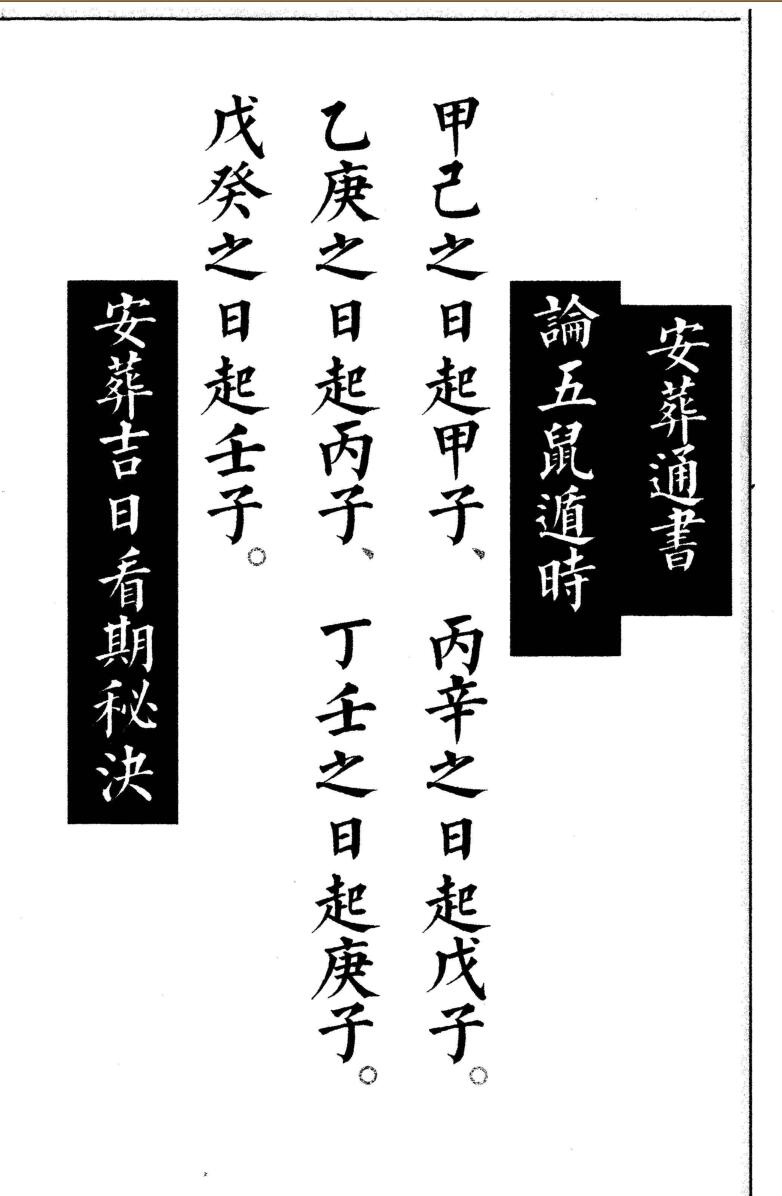 安葬通書
論五鼠遁時
甲己之日起甲子、　丙辛之日起戊子。
乙庚之日起丙子、　丁壬之日起庚子。
戊癸之日起壬子。
安葬吉日看期秘決